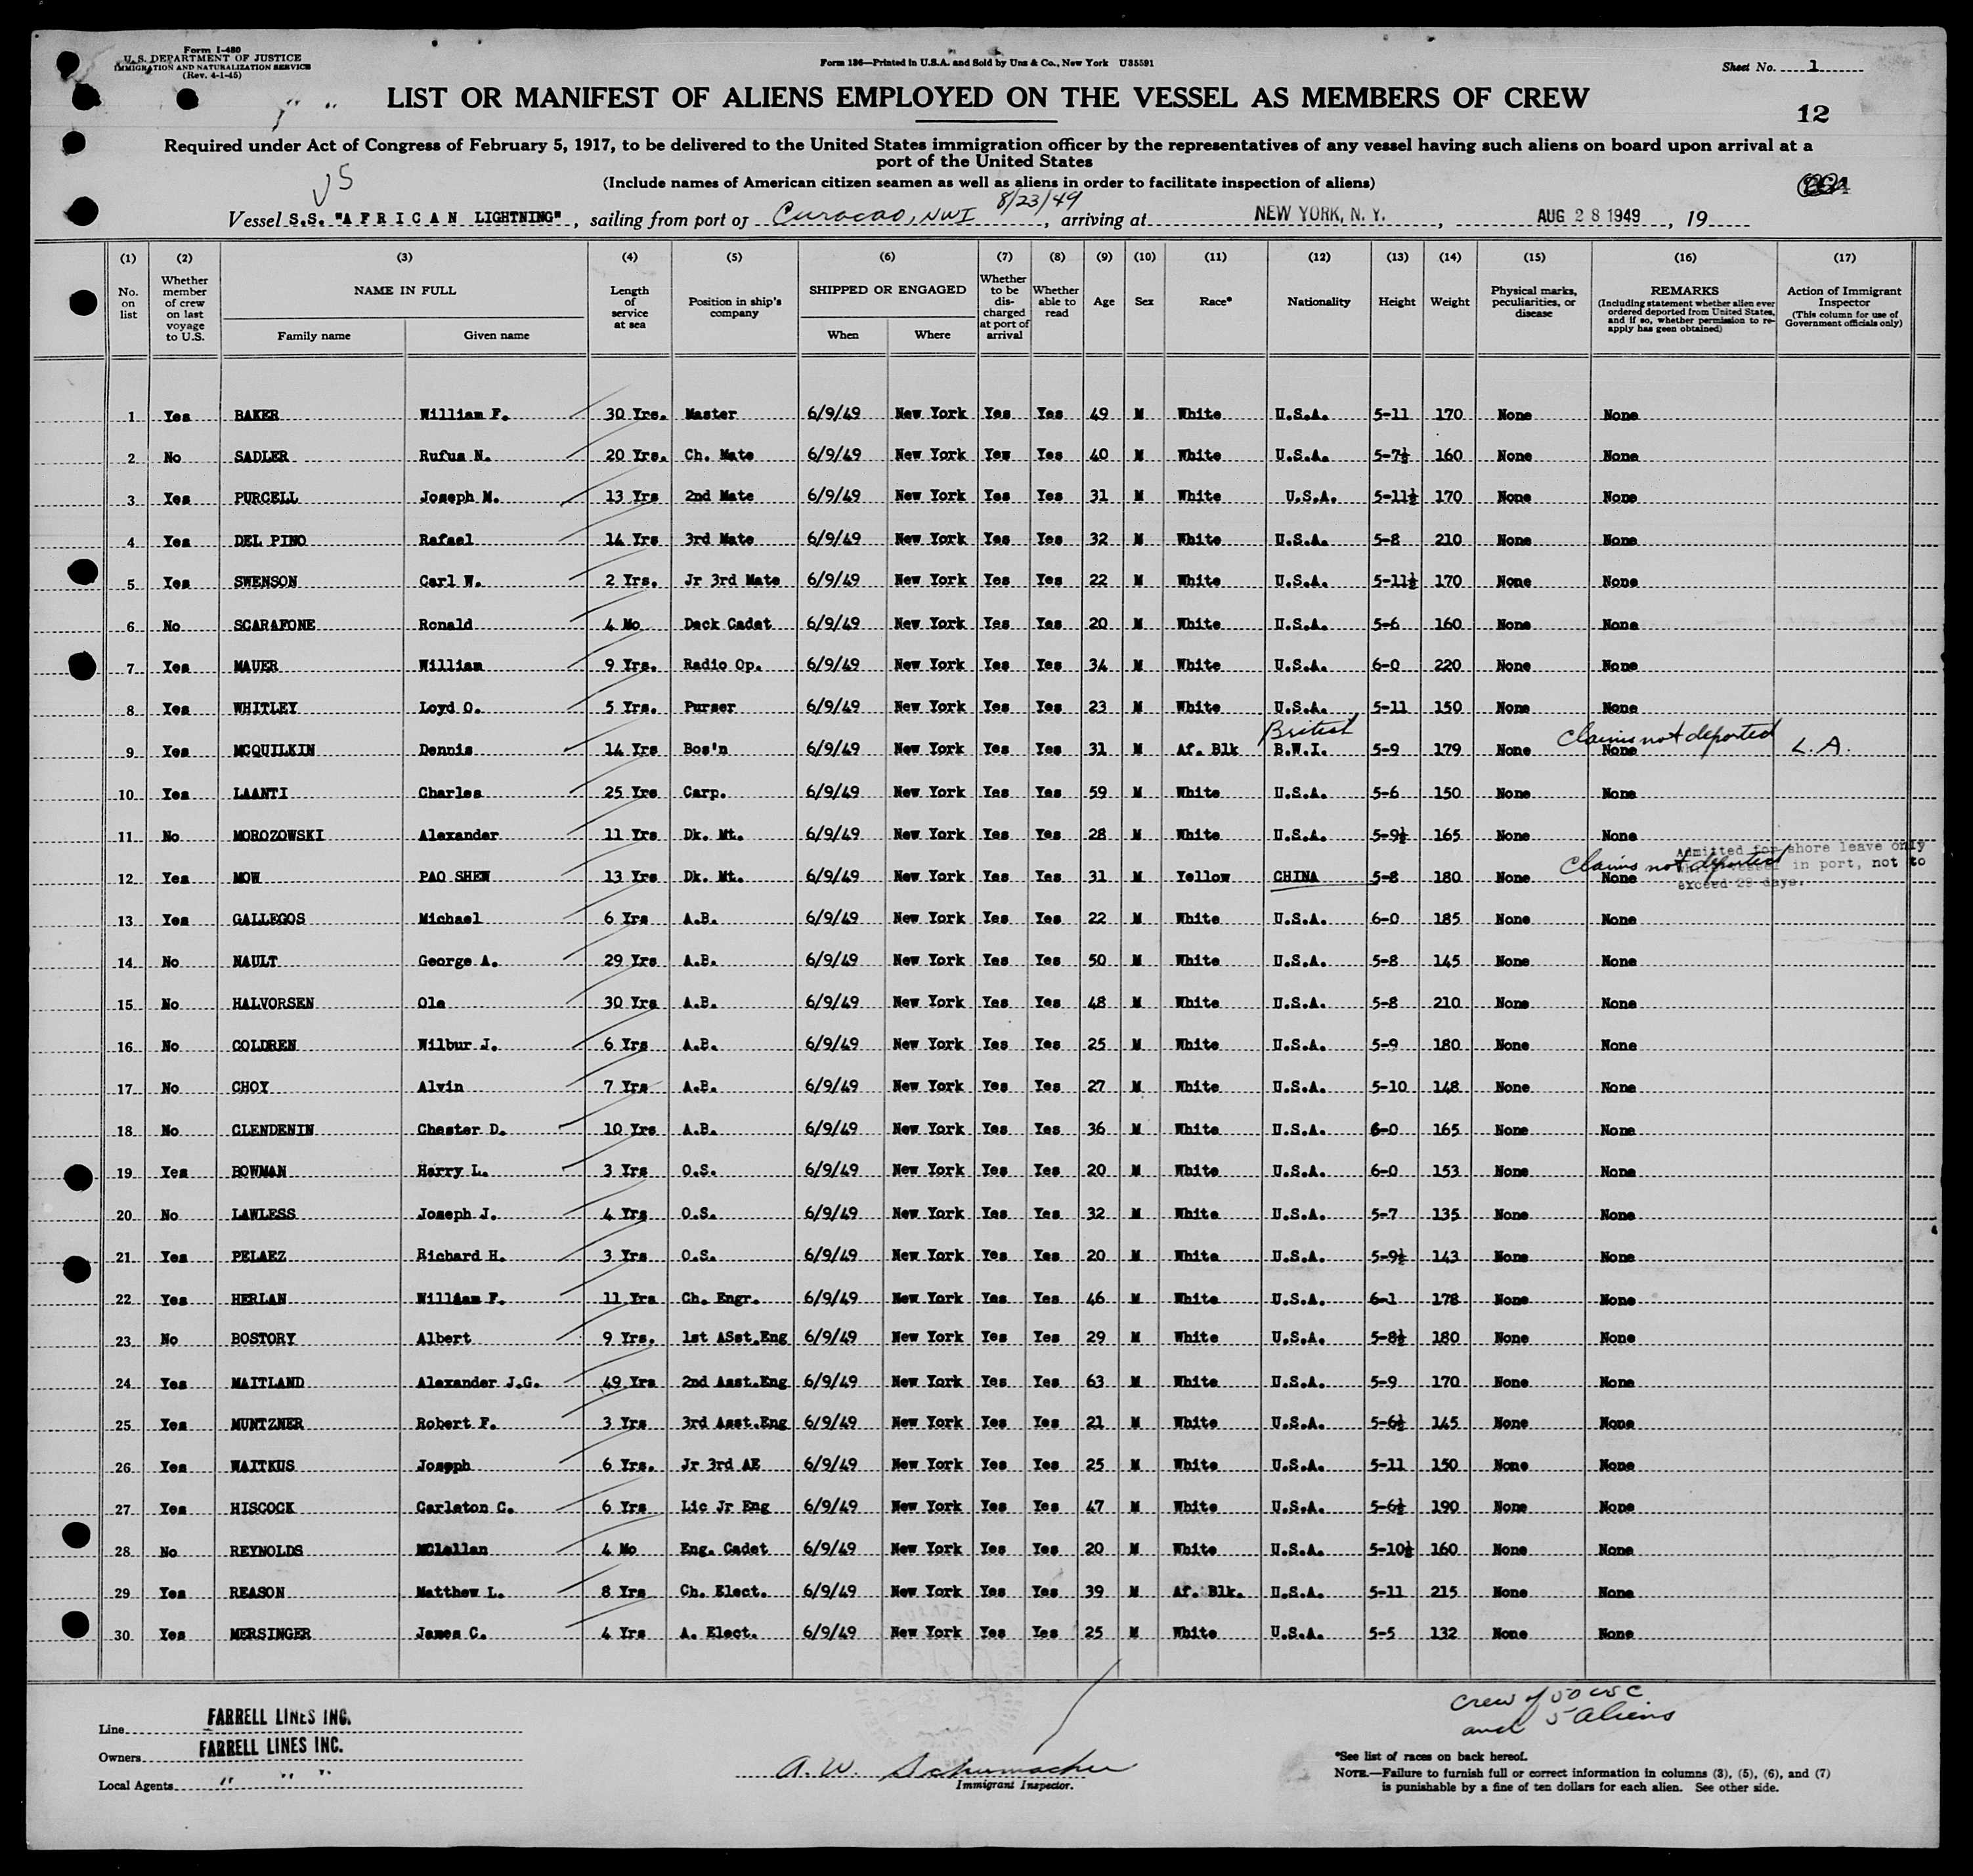 Form I-480
U. S. DEPARTMENT OF JUSTICE
IMMIGRATION AND NATURALIZATION SERVICE
(Rev. 4-1-45)
Form 136—Printed in U.S.A. and Sold by Unz & Co., New York U35591
Sheet No. 1
LIST OR MANIFEST OF ALIENS EMPLOYED ON THE VESSEL AS MEMBERS OF CREW
12
Required under Act of Congress of February 5, 1917, to be delivered to the United States immigration officer by the representatives of any vessel having such aliens on board upon arrival at a
port of the United States
(Include names of American citizen seamen as well as aliens in order to facilitate inspection of aliens)
US
Vessel S.S. "AFRICAN LIGHTNING", sailing from port of Curacao, NWI 8/23/49, arriving at NEW YORK, N. Y., AUG 28 1949, 19
(1) (2) (3) (4) (5) (6) (7) (8) (9) (10) (11) (12) (13) (14) (15) (16) (17)
No. on list
Whether member of crew on last voyage to U.S.
NAME IN FULL
Family name Given name
Length of service at sea
Position in ship's company
SHIPPED OR ENGAGED
When Where
Whether to be discharged at port of arrival
Whether able to read
Age
Sex
Race*
Nationality
Height
Weight
Physical marks, peculiarities, or disease
REMARKS
(Including statement whether alien ever ordered deported from United States, and if so, whether permission to re-apply has geen obtained)
Action of Immigrant Inspector
(This column for use of Government officials only)
1 Yes BAKER William F. 30 Yrs. Master 6/9/49 New York Yes Yes 49 M White U.S.A. 5-11 170 None None
2 No SADLER Rufus N. 20 Yrs. Ch. Mate 6/9/49 New York Yew Yes 40 M White U.S.A. 5-7½ 160 None None
3 Yes PURCELL Joseph M. 13 Yrs 2nd Mate 6/9/49 New York Yes Yes 31 M White U.S.A. 5-11½ 170 None None
4 Yes DEL PINO Rafael 14 Yrs 3rd Mate 6/9/49 New York Yes Yes 32 M White U.S.A. 5-8 210 None None
5 Yes SWENSON Carl W. 2 Yrs. Jr 3rd Mate 6/9/49 New York Yes Yes 22 M White U.S.A. 5-11½ 170 None None
6 No SCARAFONE Ronald 4 Mo Deck Cadet 6/9/49 New York Yes Yes 20 M White U.S.A. 5-6 160 None None
7 Yes MAUER William 9 Yrs. Radio Op. 6/9/49 New York Yes Yes 34 M White U.S.A. 6-0 220 None None
8 Yes WHITLEY Loyd O. 5 Yrs. Purser 6/9/49 New York Yes Yes 23 M White U.S.A. 5-11 150 None None
9 Yes MCQUILKIN Dennis 14 Yrs Bos'n 6/9/49 New York Yes Yes 31 M Af. Blk British B.W.I. 5-9 179 None None Claims not deported L.A.
10 Yes LAANTI Charles 25 Yrs Carp. 6/9/49 New York Yes Yes 59 M White U.S.A. 5-6 150 None None
11 No MOROZOWSKI Alexander 11 Yrs Dk. Mt. 6/9/49 New York Yes Yes 28 M White U.S.A. 5-9½ 165 None None
12 Yes MOW PAO SHEW 13 Yrs Dk. Mt. 6/9/49 New York Yes Yes 31 M Yellow CHINA 5-8 180 None None Claims not deported
Admitted for shore leave only
while vessel in port, not to
exceed 29 days.
13 Yes GALLEGOS Michael 6 Yrs A.B. 6/9/49 New York Yes Yes 22 M White U.S.A. 6-0 185 None None
14 No NAULT George A. 29 Yrs A.B. 6/9/49 New York Yes Yes 50 M White U.S.A. 5-8 145 None None
15 No HALVORSEN Ole 30 Yrs A.B. 6/9/49 New York Yes Yes 48 M White U.S.A. 5-8 210 None None
16 No COLDREN Wilbur J. 6 Yrs A.B. 6/9/49 New York Yes Yes 25 M White U.S.A. 5-9 180 None None
17 No CHOY Alvin 7 Yrs A.B. 6/9/49 New York Yes Yes 27 M White U.S.A. 5-10 148 None None
18 No CLENDENIN Chester D. 10 Yrs A.B. 6/9/49 New York Yes Yes 36 M White U.S.A. 6-0 165 None None
19 Yes BOWMAN Harry L. 3 Yrs O.S. 6/9/49 New York Yes Yes 20 M White U.S.A. 6-0 153 None None
20 No LAWLESS Joseph J. 4 Yrs O.S. 6/9/49 New York Yes Yes 32 M White U.S.A. 5-7 135 None None
21 Yes PELAEZ Richard H. 3 Yrs O.S. 6/9/49 New York Yes Yes 20 M White U.S.A. 5-9½ 143 None None
22 Yes HERLAN William F. 11 Yrs Ch. Engr. 6/9/49 New York Yes Yes 46 M White U.S.A. 6-1 178 None None
23 No BOSTORY Albert 9 Yrs. 1st ASst.Eng 6/9/49 New York Yes Yes 29 M White U.S.A. 5-8½ 180 None None
24 Yes MAITLAND Alexander J.G. 49 Yrs 2nd Asst.Eng 6/9/49 New York Yes Yes 63 M White U.S.A. 5-9 170 None None
25 Yes MUNTZNER Robert F. 3 Yrs 3rd Asst.Eng 6/9/49 New York Yes Yes 21 M White U.S.A. 5-6½ 145 None None
26 Yes WAITKUS Joseph 6 Yrs. Jr 3rd AE 6/9/49 New York Yes Yes 25 M White U.S.A. 5-11 150 None None
27 Yes HISCOCK Carleton C. 6 Yrs Lic Jr Eng 6/9/49 New York Yes Yes 47 M White U.S.A. 5-6½ 190 None None
28 No REYNOLDS MClellan 4 Mo Eng. Cadet 6/9/49 New York Yes Yes 20 M White U.S.A. 5-10½ 160 None None
29 Yes REASON Matthew L. 8 Yrs Ch. Elect. 6/9/49 New York Yes Yes 39 M Af. Blk. U.S.A. 5-11 215 None None
30 Yes MERSINGER James C. 4 Yrs A. Elect. 6/9/49 New York Yes Yes 25 M White U.S.A. 5-5 132 None None
Crew of 50 USC
and 5 Aliens
Line FARRELL LINES INC.
Owners FARRELL LINES INC.
Local Agents " " "
A. W. Schumacher
Immigrant Inspector.
*See list of races on back hereof.
NOTE.—Failure to furnish full or correct information in columns (3), (5), (6), and (7)
is punishable by a fine of ten dollars for each alien. See other side.